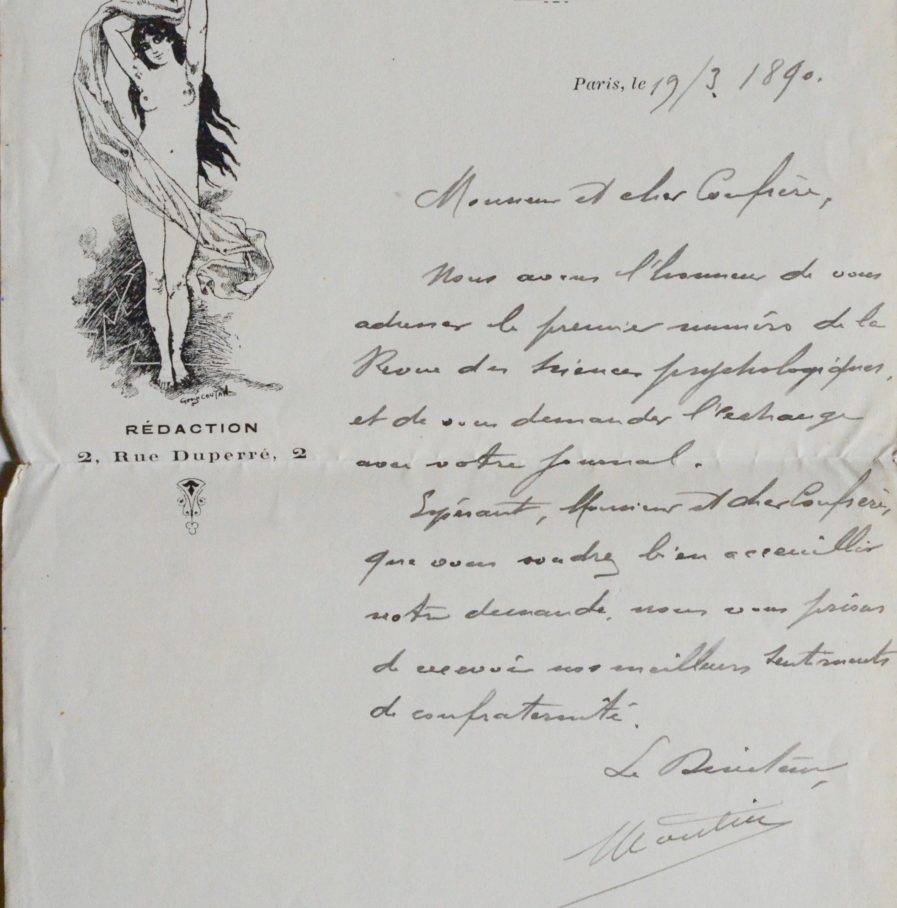 Paris, le 19/3 1890.
Monsieur et cher Confrère,
Nous avons l'honneur de vous
adresser le premier numéro de la
Revue des Sciences psychologiques,
et de vous demander l'echange
avec votre journal.
Espérant, Monsieur et cher Confrère,
que vous voudrez bien acceuillir
notre demande, nous vous prions
de recevoir nos meilleurs sentiments
de confraternité.
Le Directeur,
Moutin
RÉDACTION
2, Rue Duperré, 2